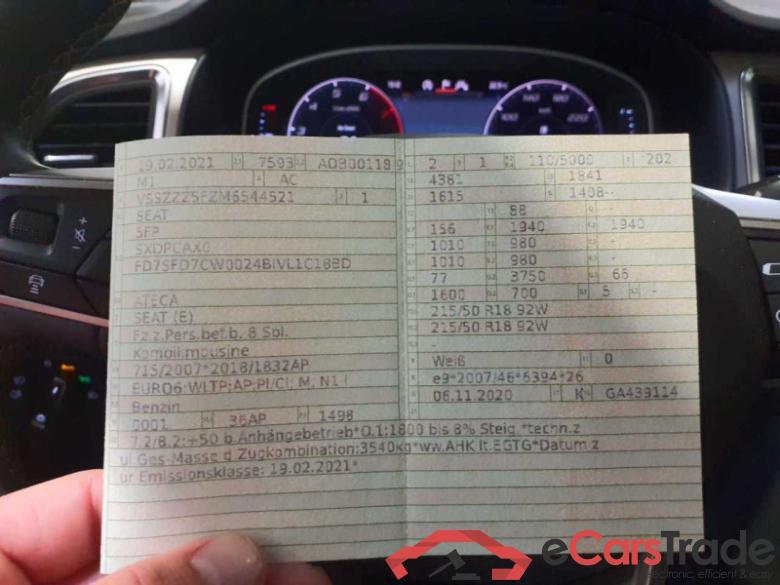 19.02.2021 7593 ADB00118 9
M1 AC
VSSZZZ5FZM6544521 1
SEAT
5FP
SXDPCAX0
FD7SFD7CW0024BIVL1C18BD
ATECA
SEAT (E)
Fz.z.Pers.bef.b. 8 Spl.
Kombilimousine
715/2007*2018/1832AP
EURO6;WLTP;AP;PI/CI; M, N1 I
Benzin
0001 36AP 1498
2 1 110/5000 202
4381 1841
1615 1498--
88 -
156 1940 1940
1010 980 -
1010 980 -
77 3750 66
1600 700 5 -
215/50 R18 92W
215/50 R18 92W
-
Weiß 0
e9*2007/46*6394*26
06.11.2020 K GA439114
7.2/8.2:+50 b.Anhängebetrieb*O.1:1800 bis 8% Steig.*techn.z
ul Ges-Masse d Zugkombination:3540kg*ww.AHK lt.EGTG*Datum z
ur Emissionsklasse: 19.02.2021*
eCarsTrade
electronic, efficient & easy